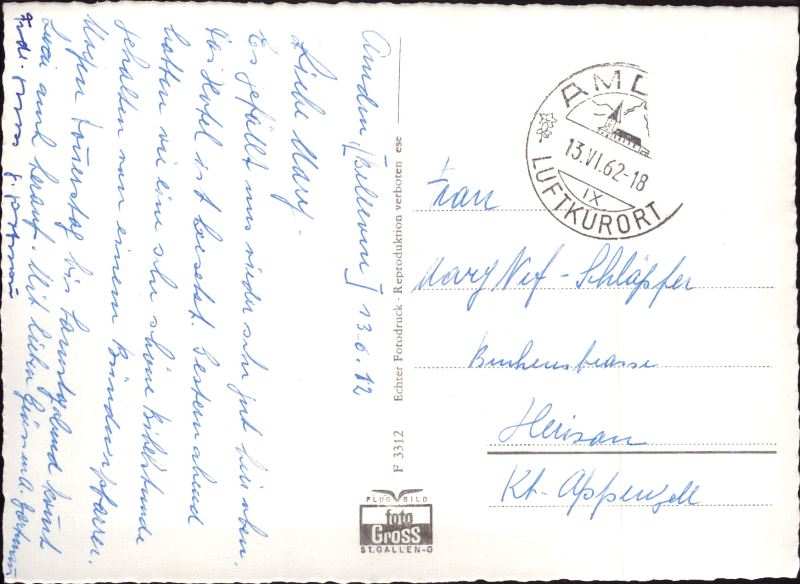 Amden (Bellevue) 13.6.62
Liebe Mary.
Es gefällt uns wieder sehr gut hier oben.
Das Hotel ist besetzt. Gestern abend
hatten wir eine sehr schöne Bibelstunde
gehalten von einem Bündnerpfarrer.
Morgen Donnerstag bis Samstagabend kommt
auch herauf. Mit lieben Grüssen
F 3312 Echter Fotodruck - Reproduktion verboten ese
FLUG BILD
foto
GROSS
ST.GALLEN-O
AMD
13.VI.62-18
IX
LUFTKURORT
Frau
Mary Nef-Schläpfer
Buchenstrasse
Herisau
Kt. Appenzell